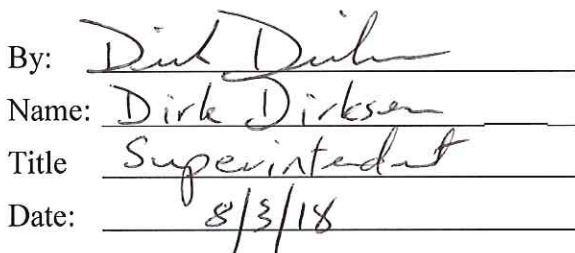 By: Dirk Dirksen
Name: Dirk Dirksen
Title Superintendent
Date: 8/3/18